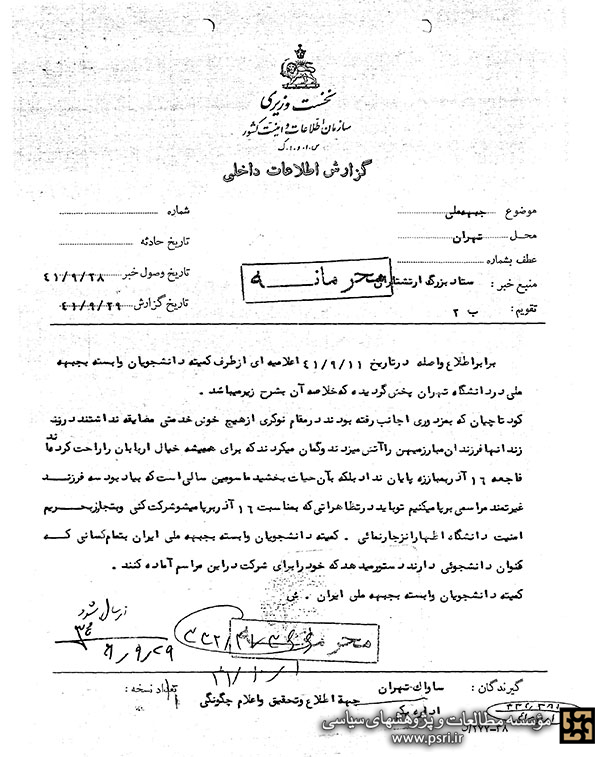 نخست وزیری
سازمان اطلاعات و امنیت کشور
س.ا.و.ا.ک
گزارش اطلاعات داخلی
موضوع جبهه ملی
محل تهران
عطف بشماره
منبع خبر : ستاد بزرگ ارتشتاران
تقویم : ب ۲
شماره
تاریخ حادثه
تاریخ وصول خبر ۴۱/۹/۲۸
تاریخ گزارش ۴۱/۹/۲۹
محرمانـــه
برابر اطلاع واصله در تاریخ ۴۱/۹/۱۱ اعلامیه ای از طرف کمیته دانشجویان وابسته بجبهه
ملی در دانشگاه تهران پخش گردیده که خلاصه آن بشرح زیر میباشد .
کودتاچیان که بمزدوری اجانب رفته بودند در مقام نوکری از هیچ خوش خدمتی مضایقه نداشتند در روز
زندانها فرزندان مبارز میهن را آتش میزدند و گمان میکردند که برای همیشه خیال اربابان را راحت کرده‌اند
فاجعه ۱۶ آذر بمبارزه پایان نداد بلکه بآن حیات بخشید ما سومین سالی است که بیاد بود سه فرزنــد
غیرتمند مراسمی برپا میکنیم تو باید در تظاهراتی که بمناسبت ۱۶ آذر برپا میشود شرکت کنی و بتجاوز بحریــم
امنیت دانشگاه اظهار انزجار نمائی . کمیته دانشجویان وابسته بجبهه ملی ایران بتمام کسانی کــه
عنوان دانشجوئی دارند دستور میدهد که خود را برای شرکت در این مراسم آماده کنند .
کمیته دانشجویان وابسته بجبهه ملی ایران .
ارسال شود
۴۱/۹/۲۹
محرمانه
گیرندگان : ساواک تهران
جهة اطلاع و تحقیق و اعلام چگونگی
تعداد نسخه :
موسسه مطالعات و پژوهشهای سیاسی
www.psri.ir